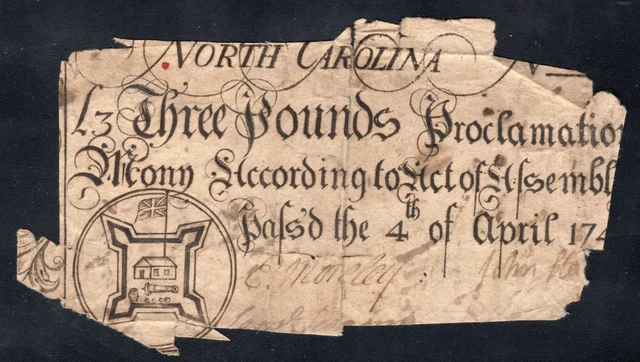 NORTH CAROLINA N
£3 Three Pounds Proclamation
Mony According to Act of Assembl
Pass'd the 4th of April 174
E. Moseley : John